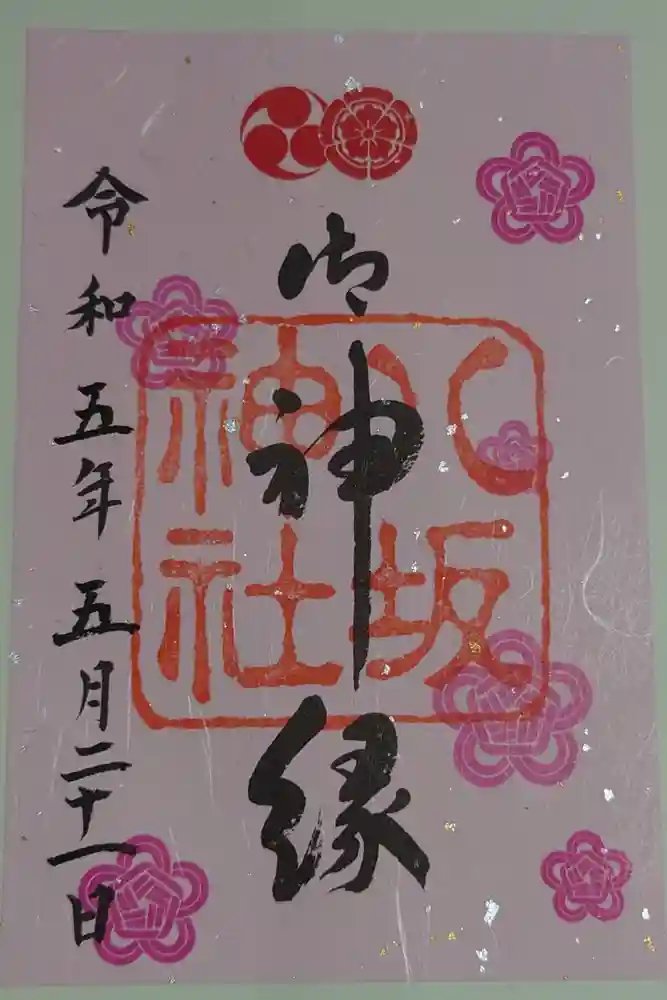 御神縁
八坂
神社
令和五年五月二十一日